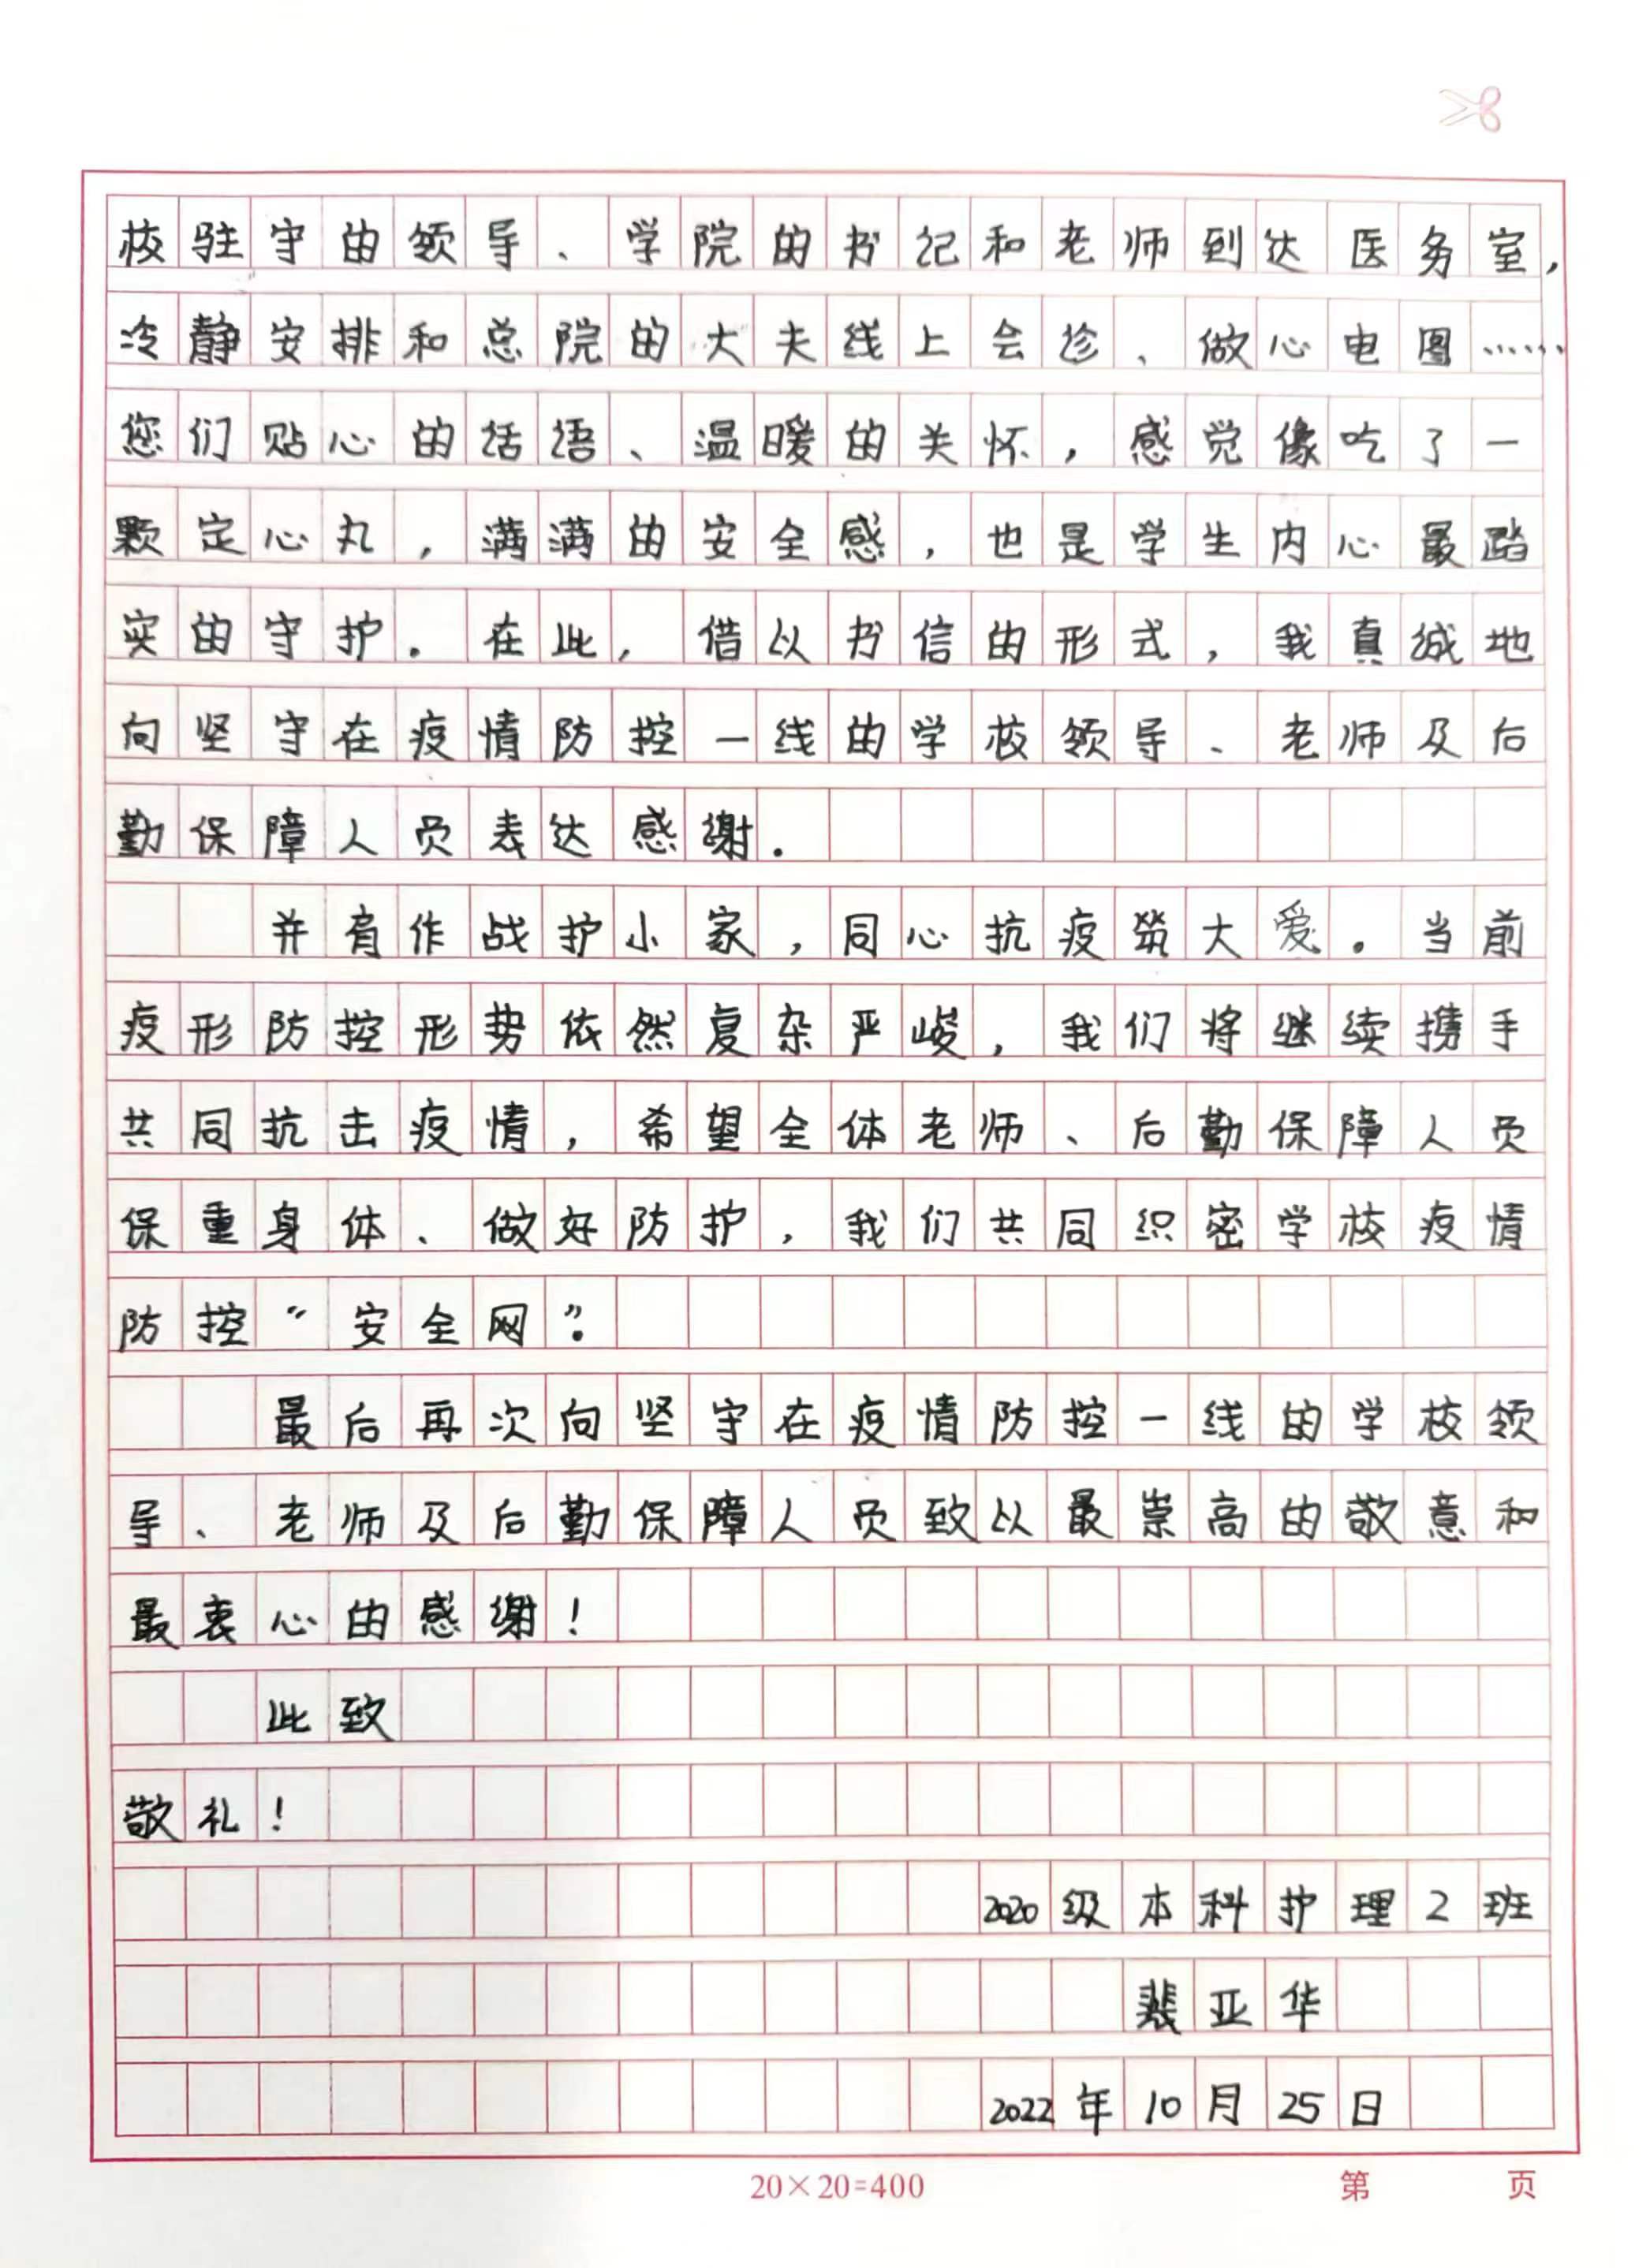 校驻守的领导、学院的书记和老师到达医务室，
冷静安排和总院的大夫线上会诊、做心电图……
您们贴心的话语、温暖的关怀，感觉像吃了一
颗定心丸，满满的安全感，也是学生内心最踏
实的守护。在此，借以书信的形式，我真诚地
向坚守在疫情防控一线的学校领导、老师及后
勤保障人员表达感谢。
并肩作战护小家，同心抗疫筑大爱。当前
疫形防控形势依然复杂严峻，我们将继续携手
共同抗击疫情，希望全体老师、后勤保障人员
保重身体、做好防护，我们共同织密学校疫情
防控“安全网”。
最后再次向坚守在疫情防控一线的学校领
导、老师及后勤保障人员致以最崇高的敬意和
最衷心的感谢！
此致
敬礼！
2020级本科护理2班
裴亚华
2022年10月25日
20×20=400
第 页